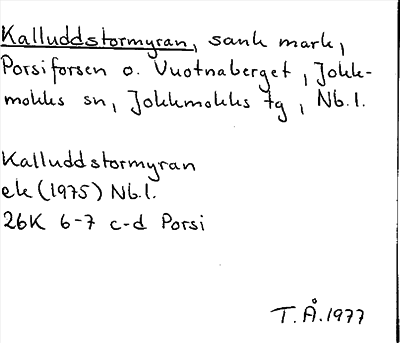 Kalluddstormyran, sank mark,
Porsiforsen o. Vuotnaberget, Jokk-
mokks sn, Jokkmokks tg, Nb.l.
Kalluddstormyran
ek (1975) Nb.l.
26K 6-7 c-d Porsi
T.Å.1977